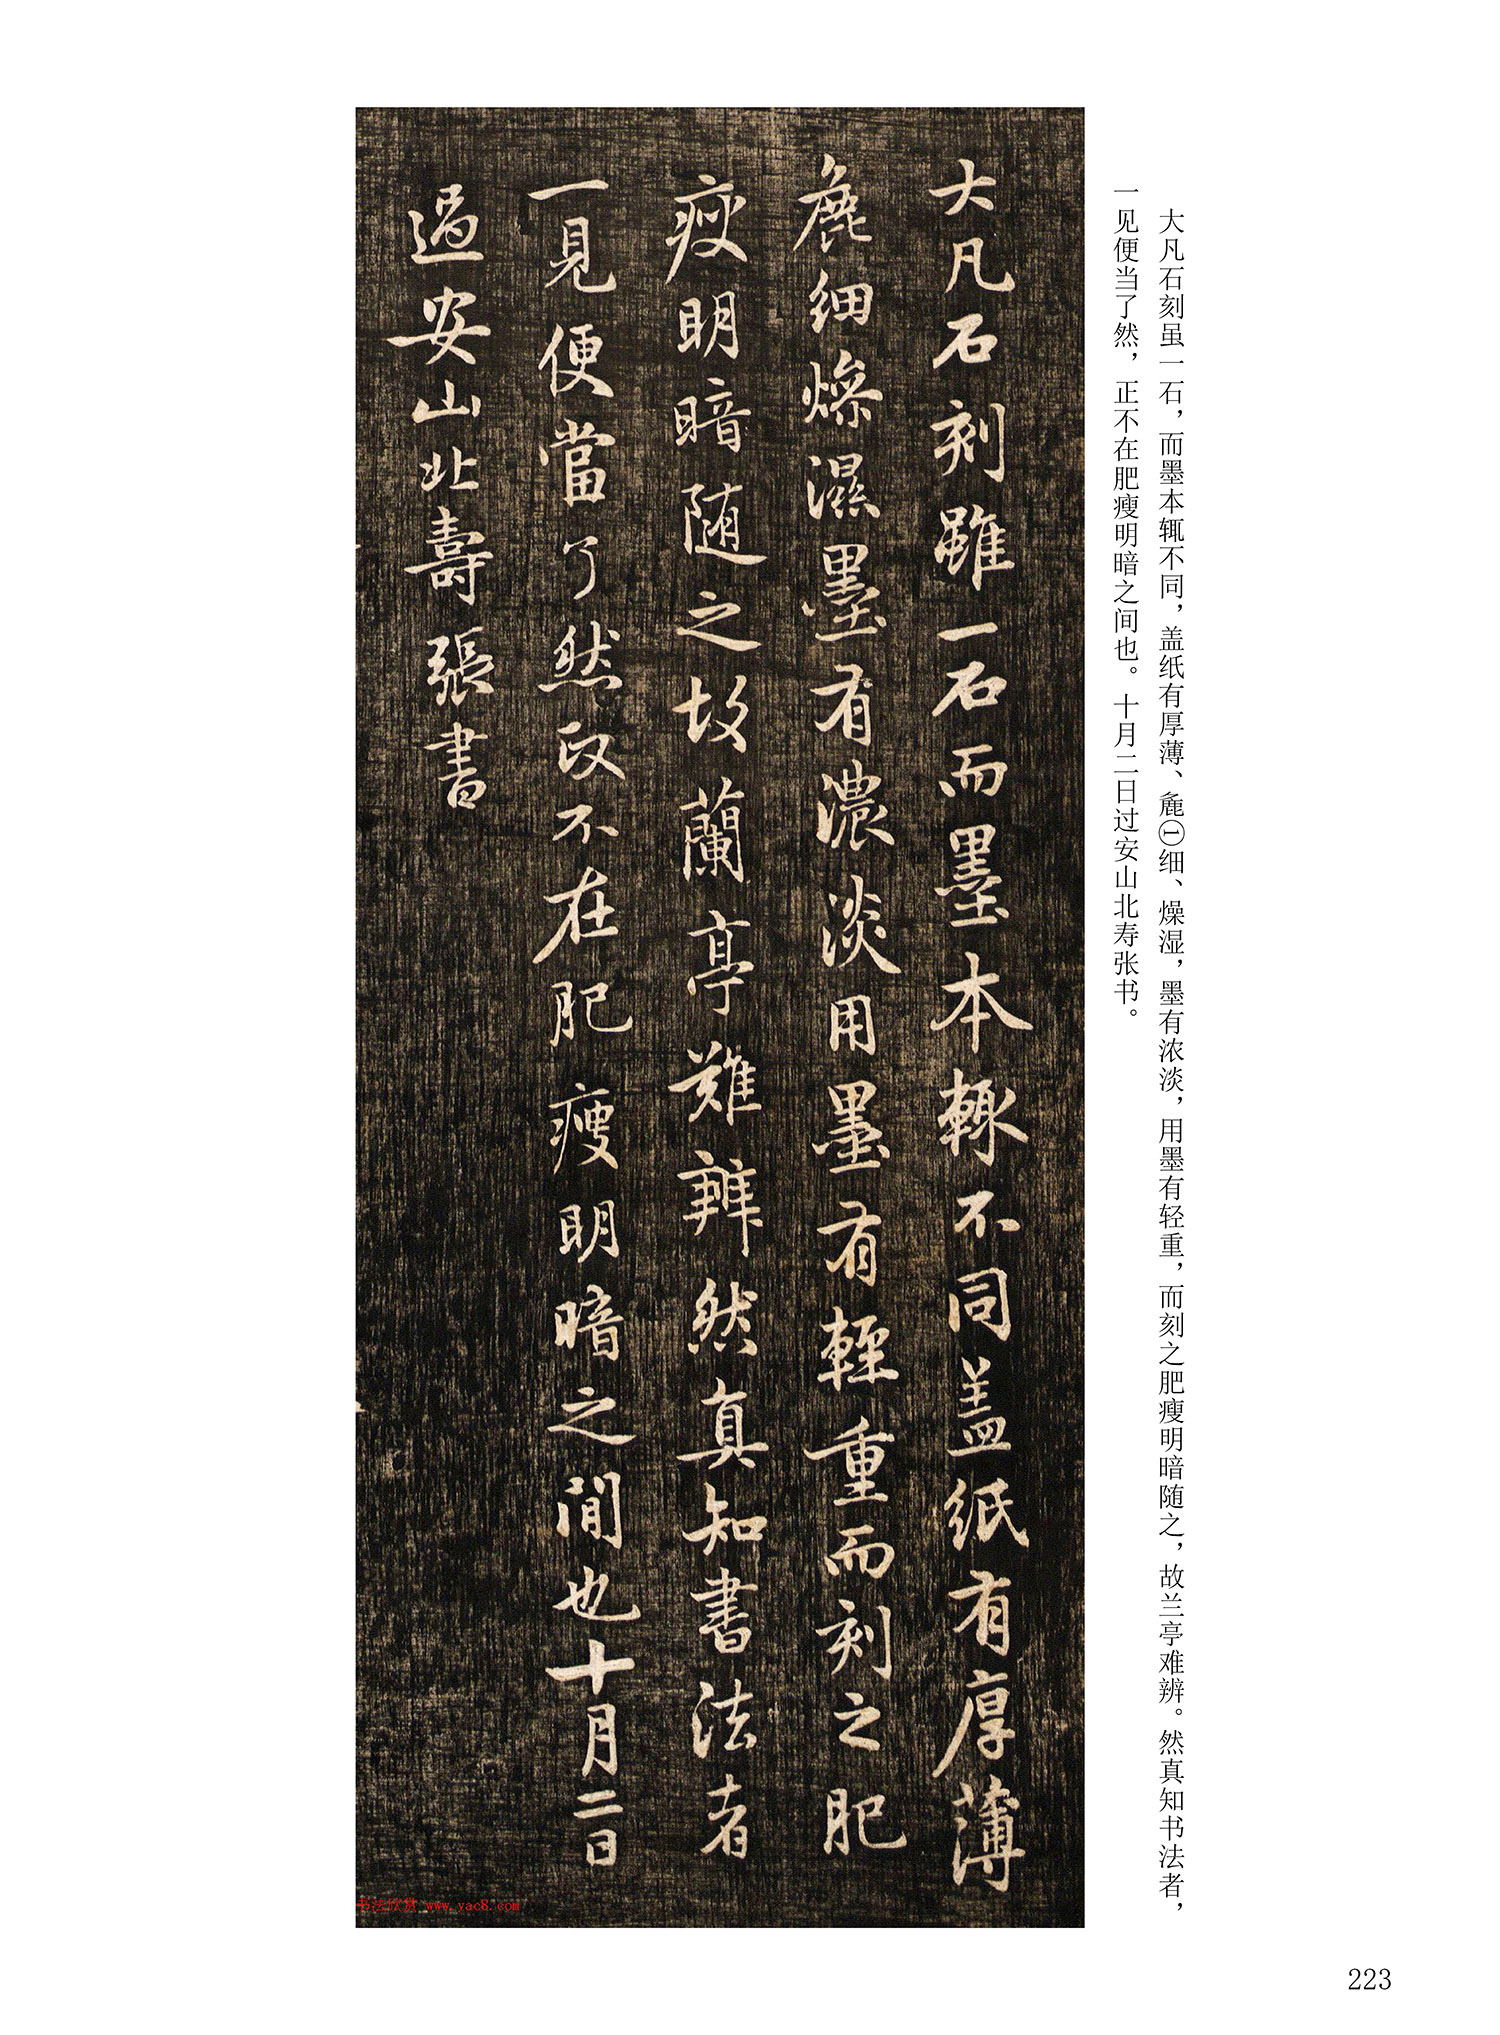 大凡石刻虽一石，而墨本辄不同，盖纸有厚薄、麄①细、燥湿，墨有浓淡，用墨有轻重，而刻之肥瘦明暗随之，故兰亭难辨。然真知书法者，
一见便当了然，正不在肥瘦明暗之间也。十月二日过安山北寿张书。
大凡石刻雖一石而墨本輙不同盖紙有厚薄
麄細燥濕墨有濃淡用墨有輕重而刻之肥
瘦明暗随之故蘭亭難辨然真知書法者
一見便當了然政不在肥瘦明暗之間也十月二日
過安山北壽張書
书法欣赏 www.yac8.com
223